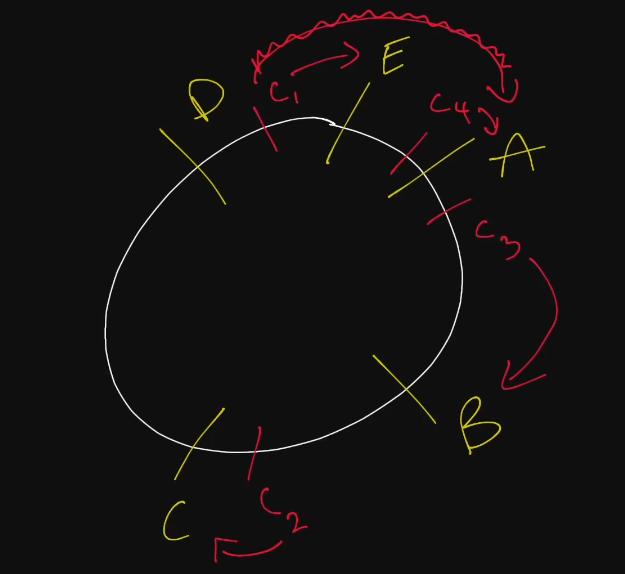 E
D
C1
C4
A
C3
B
C
C2